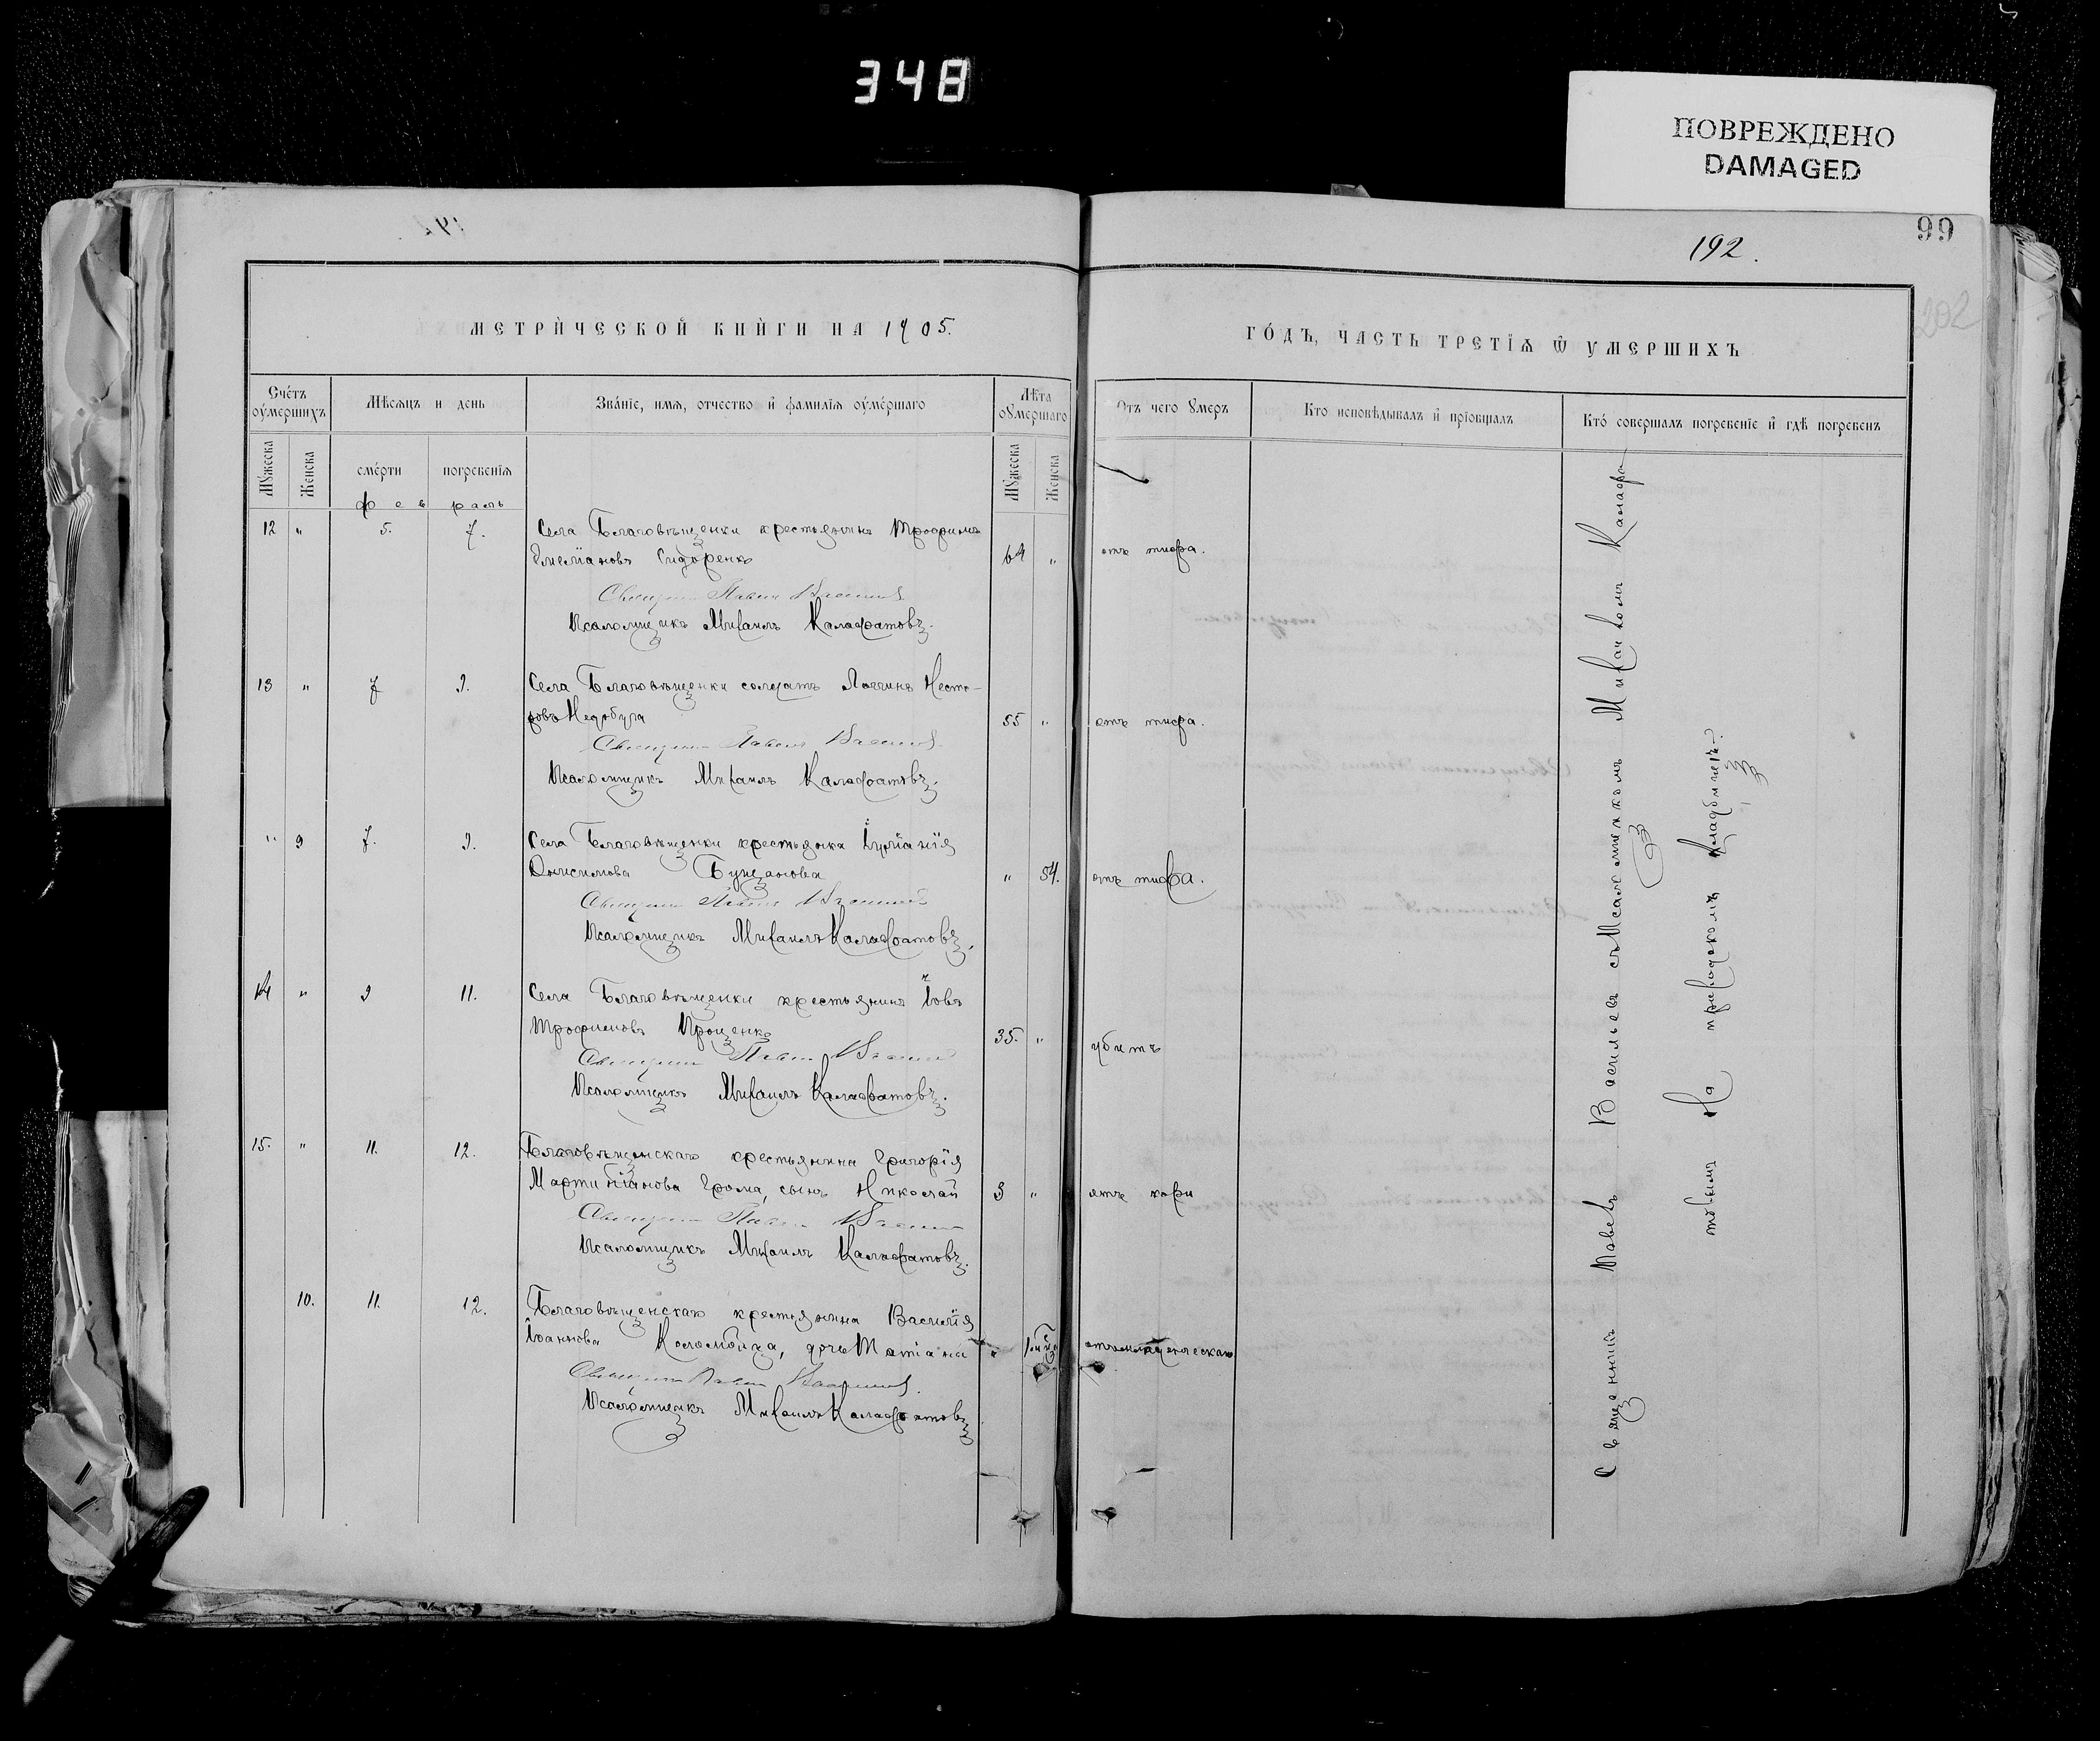 348
ПОВРЕЖДЕНО
DAMAGED
99
192.
202
МЕТРИЧЕСКОЙ КНИГИ НА 1905.
ГОДЪ, ЧАСТЬ ТРЕТІѦ Ѿ УМЕРШИХЪ
Счетъ оумершихъ
Мѣсяцъ и день
Званіе, имя, отчество и фамилія оумершаго
Лѣта оумершаго
Отъ чего умеръ
Кто исповѣдывалъ и пріобщалъ
Кто совершалъ погребеніе и гдѣ погребенъ
Мужеска
Женска
смерти
погребенія
Мужеска
Женска
Февраль
12 " 5. 7. Села Благовѣщенки крестьянинъ Трофимъ
Емеліановъ Сидоренко 64 " отъ тифа.
Священникъ Павелъ Васильевъ
Псаломщикъ Михаилъ Калафатовъ.
13 " 7 9. Села Благовѣщенки солдатъ Логгинъ Несто-
ровъ Недобуга 55 " отъ тифа.
Священникъ Павелъ Васильевъ
Псаломщикъ Михаилъ Калафатовъ.
" 9 7. 9. Села Благовѣщенки крестьянка Іуліанія
Онисимова 54. отъ тифа.
Священникъ Павелъ Васильевъ
Псаломщикъ Михаилъ Калафатовъ.
14 " 9 11. Села Благовѣщенки крестьянинъ Іовъ
Трофимовъ Проценко 35. " убитъ
Священникъ Павелъ Васильевъ
Псаломщикъ Михаилъ Калафатовъ.
15. " 11. 12. Благовѣщенскаго крестьянина Григорія
Мартиніанова Грома, сынъ Николай 3 " отъ кори
Священникъ Павелъ Васильевъ
Псаломщикъ Михаилъ Калафатовъ.
10. 11. 12. Благовѣщенскаго крестьянина Василія
Іоаннова Коломойца, дочь Татіана " отъ младенческаго
Священникъ Павелъ Васильевъ.
Псаломщикъ Михаилъ Калафатовъ
Священникъ Павелъ Васильевъ съ Псаломщикомъ Михаиломъ Калафа-
товымъ На приходскомъ кладбищѣ.